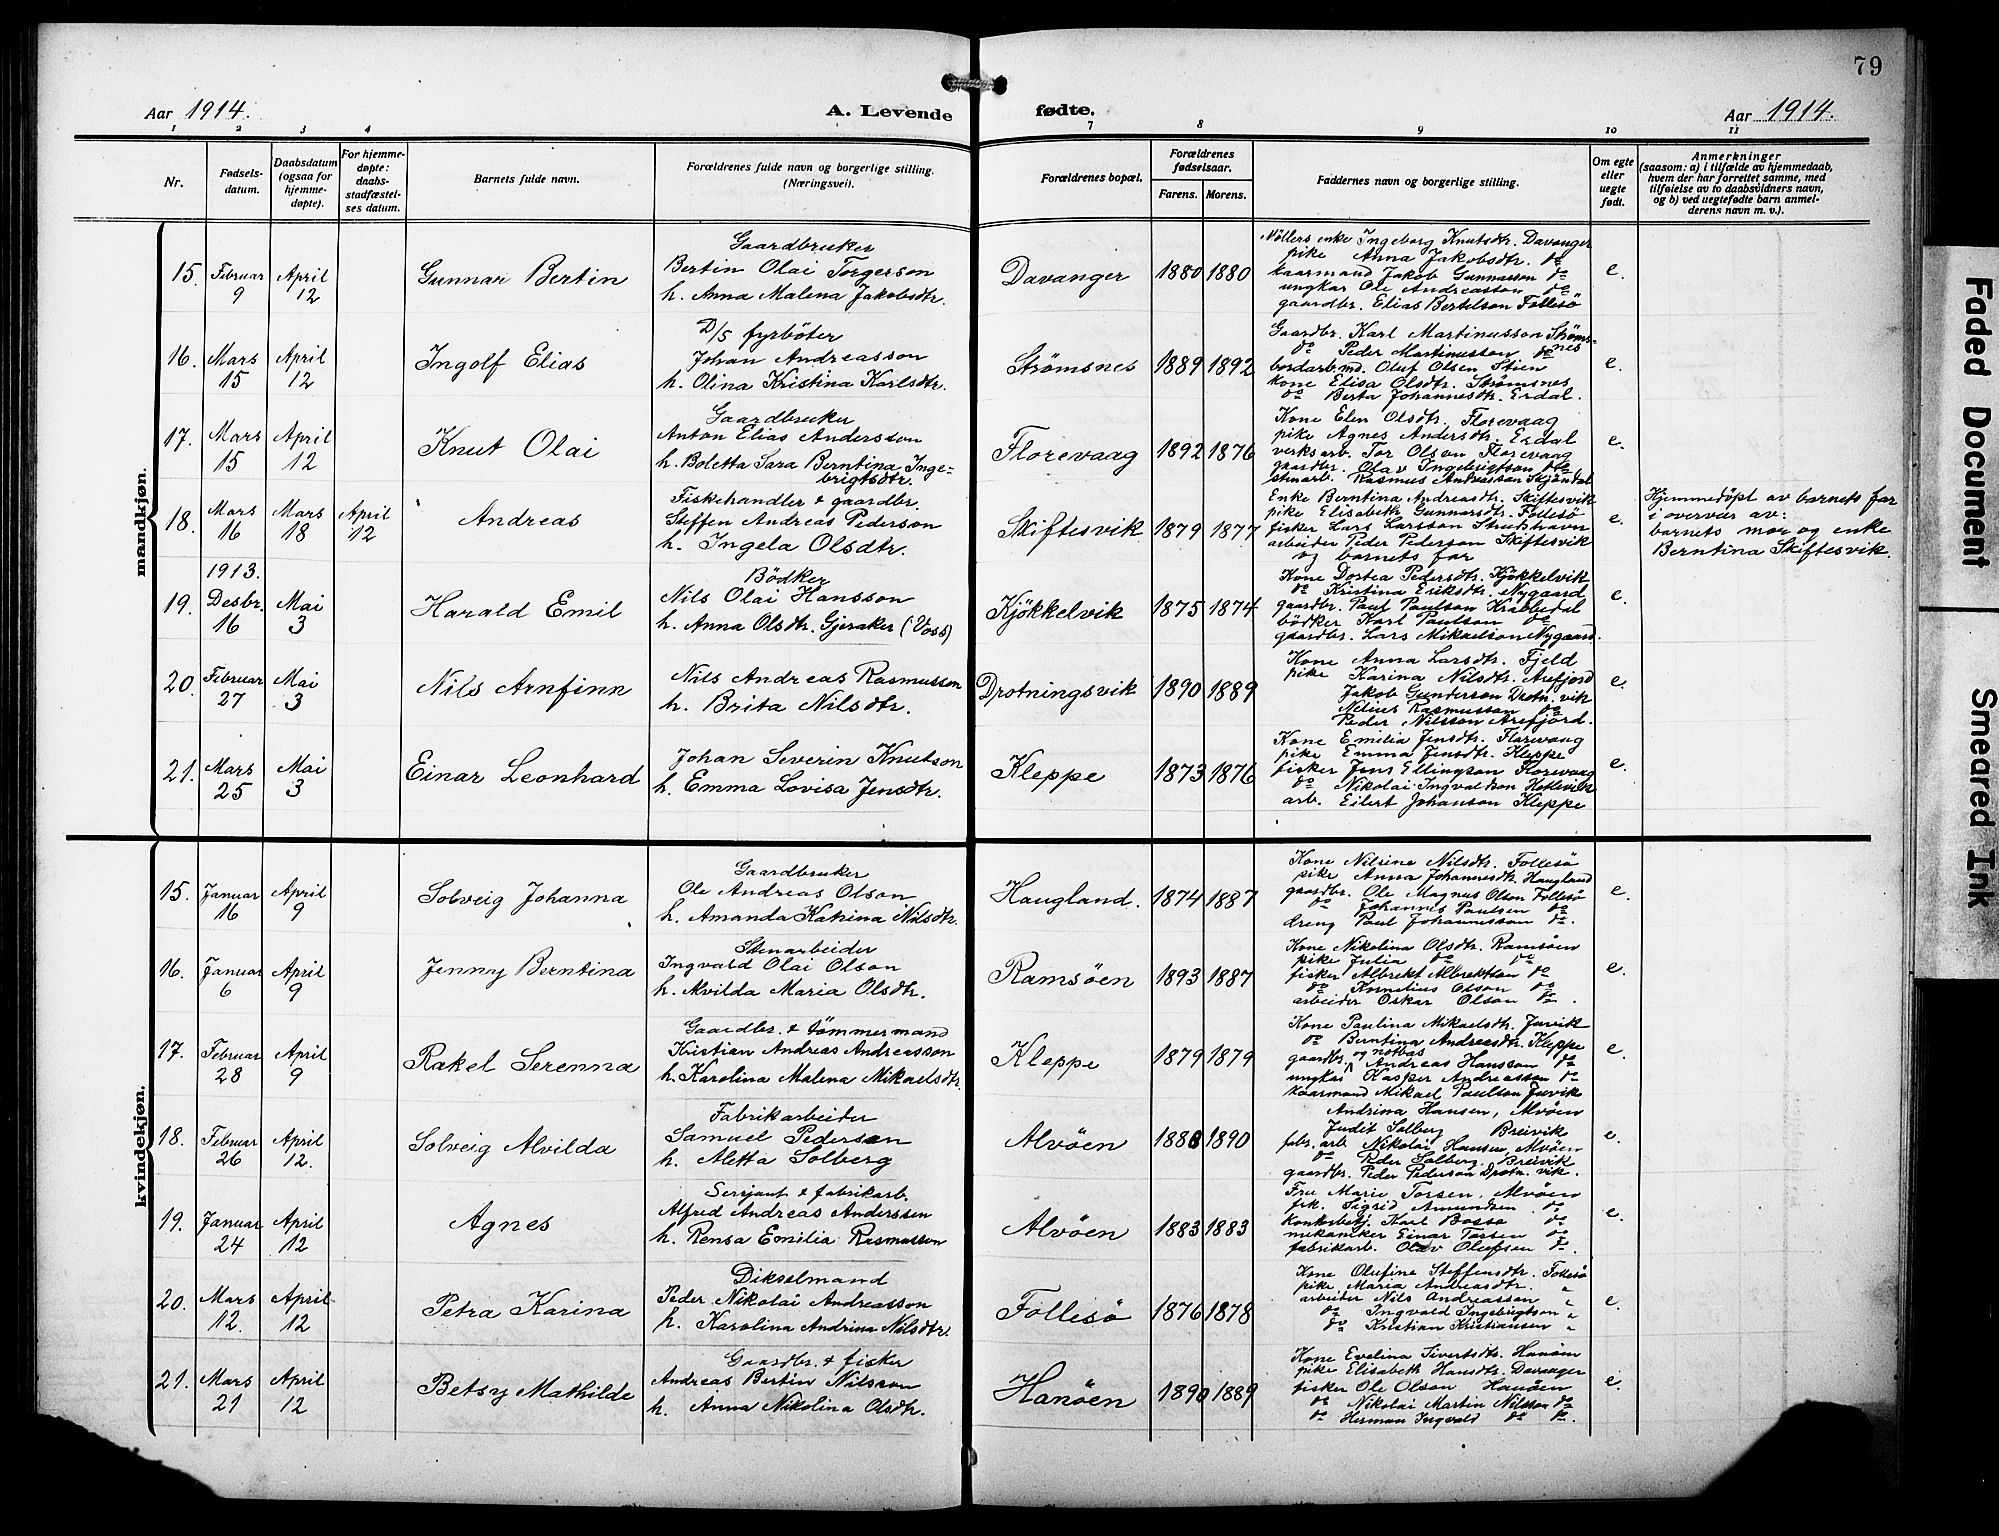 79
Aar 1914.
A. Levende fødte.
Aar 1914.
1 2 3 4 7 8 9 10 11
Nr.
Fødsels-
datum.
Daabsdatum
(ogsaa for
hjemme-
døpte).
For hjemme-
døpte:
daabs-
stadfæstel-
ses datum.
Barnets fulde navn.
Forældrenes fulde navn og borgerlige stilling.
(Næringsvei).
Forældrenes bopæl.
Forældrenes
fødselsaar.
Farens. Morens.
Faddernes navn og borgerlige stilling.
Om egte
eller
uegte
født.
Anmerkninger
(saasom: a) i tilfælde av hjemmedaab,
hvem der har forrettet samme, med
tilføielse av to daabsvidners navn,
og b) ved uegtefødte barn anmel-
derens navn m. v.).
mandkjøn.
15. Februar 9 April 12 Gunnar Bertin
Gaardbruker
Bertin Olai Torgerson
h. Anna Malena Jakobsdtr.
Davanger 1880 1880
Møllers enke Ingeborg Knutsdtr. Davanger
pike Anna Jakobsdtr. do
kaarmand Jakob Gunnarson do
ungkar Ole Andreasson do
gaardbr. Elias Bertelson Follesö
e.
16. Mars 15 April 12 Ingolf Elias
D/S fyrböter
Johan Andreasson
h. Olina Kristina Karlsdtr.
Strømsnes 1889 1892
Gaardbr. Karl Martinusson Strøms-
nes
do Peder Martinusson do
bordarb.md. Oluf Olsen Stien
kone Elisa Olsdtr. Strømsnes
do Berta Johannesdtr. Erdal.
e.
17. Mars 15 April 12 Knut Olai
Gaardbruker
Anton Elias Andersson
h. Boletta Sara Berntina Inge-
brigtsdtr.
Florevaag 1892 1876
Kone Elen Olsdtr. Florevaag
pike Agnes Andersdtr. Erdal
verksarb. Tor Olson Florevaag
gaardbr. Olav Ingebrigtson do
stenarb. Rasmus Andreasson Skjøndal
e.
18. Mars 16 Mars 18 April 12 Andreas
Fiskehandler & gaardbr.
Steffen Andreas Pederson
h. Ingela Olsdtr.
Skiftesvik 1879 1877
Enke Berntina Andreasdtr. Skiftesvik
pike Elisabeth Gunnarsdtr. Follesö
fisker Lars Larsson Strutshavn
arbeider Peder Pederson Skiftesvik
og barnets far
e.
Hjemmedöpt av barnets far
i overvær av:
barnets mor og enke
Berntina Skiftesvik.
19. 1913. Desbr. 16 Mai 3 Harald Emil
Bödker
Nils Olai Hansson
h. Anna Olsdtr. Gjeraker (Voss)
Kjökkelvik 1875 1874
Kone Dortea Pedersdtr. Kjökkelvik
do Kristina Eriksdtr. Nygaard
gaardbr. Paul Paulson Krabbedal
bödker Karl Paulson do
gaardbr. Lars Mikaelson Nygaard.
e.
20. Februar 27 Mai 3 Nils Arnfinn
Nils Andreas Rasmusson
h. Brita Nilsdtr.
Drotningsvik 1890 1889
Kone Anna Larsdtr. Fjeld
pike Karina Nilsdtr. Arefjord
Jakob Gunderson Drotn. vik
Nelius Rasmusson do
Peder Nilsson Arefjord.
e.
21. Mars 25 Mai 3 Einar Leonhard
Johan Severin Knutson
h. Emma Lovisa Jensdtr.
Kleppe 1873 1876
Kone Emilia Jensdtr. Florevaag
pike Emma Jensdtr. Kleppe
fisker Jens Ellingson Florevaag
do Nikolai Ingvaldson Hetlevik
arb. Eilert Johanson Kleppe
e.
kvindekjøn.
15. Januar 16 April 9 Solveig Johanna
Gaardbruker
Ole Andreas Olson
h. Amanda Katrina Nilsdtr.
Haugland. 1874 1887
Kone Nilsine Nilsdtr. Follesö
pike Anna Johannesdtr. Haugland
gaardbr. Ole Magnus Olson Follesö
do Johannes Paulsen do
dreng Paul Johannesson do
e.
16. Januar 6 April 9 Jenny Berntina
Stenarbeider
Ingvald Olai Olson
h. Alvilda Maria Olsdtr.
Ramsöen 1893 1887
Kone Nikolina Olsdtr. Ramsöen
pike Julia do do
fisker Albrekt Albrektson do
do Kornelius Olson do
arbeider Oskar Olson do.
e.
17. Februar 28 April 9 Rakel Serenna
Gaardbr. & tömmermand
Kristian Andreas Andreasson
h. Karolina Malena Mikaelsdtr.
Kleppe 1879 1879
Kone Paulina Mikaelsdtr. Juvik
do Berntina Andreasdtr. Kleppe
gaardbr. og notbas Andreas Hansson do
ungkar Kasper Andreasson do
kaarmand Mikael Paulson Juvik
e.
18. Februar 26 April 12. Solveig Alvilda
Fabrikarbeider
Samuel Pedersen
h. Aletta Solberg
Alvöen 1888 1890
Andrina Hansen, Alvöen
Judit Solberg Breivik
fabr.arb. Nikolai Hansen Alvöen
do Peder Solberg, Breivik
gaardbr. Peder Pederson Drotn. vik.
e.
19. Januar 24 April 12 Agnes
Sersjant & fabrikarb.
Alfred Andreas Anderssen
h. Rensa Emilia Rasmusson
Alvöen 1883 1883
Fru Marie Torsen, Alvöen
frk. Sigrid Amundsen do
kontorbetj. Karl Basse do
mekaniker Einar Torsen do
fabrikarb. Olav Olufsen do.
e.
20. Mars 12. April 12 Petra Karina
Dikselmand
Peder Nikolai Andreasson
h. Karolina Andrina Nilsdtr.
Follesö 1876 1878
Kone Olufine Steffensdtr. Follesö
pike Maria Andreasdtr. "
arbeider Nils Andreasson "
do Ingvald Ingebrigtson "
do Kristian Kristiansen "
e.
21. Mars 21 April 12 Betsy Mathilde
Gaardbr. & fisker
Andreas Bertin Nilsson
h. Anna Nikolina Olsdtr.
Hanöen 1890 1889
Kone Evelina Sivertsdtr. Hanöen
pike Elisabeth Hansdtr. Davanger
fisker Ole Olson Hanöen
do Nikolai Martin Nilsson do
do Herman Ingvald do do.
e.
Faded Document
Smeared Ink